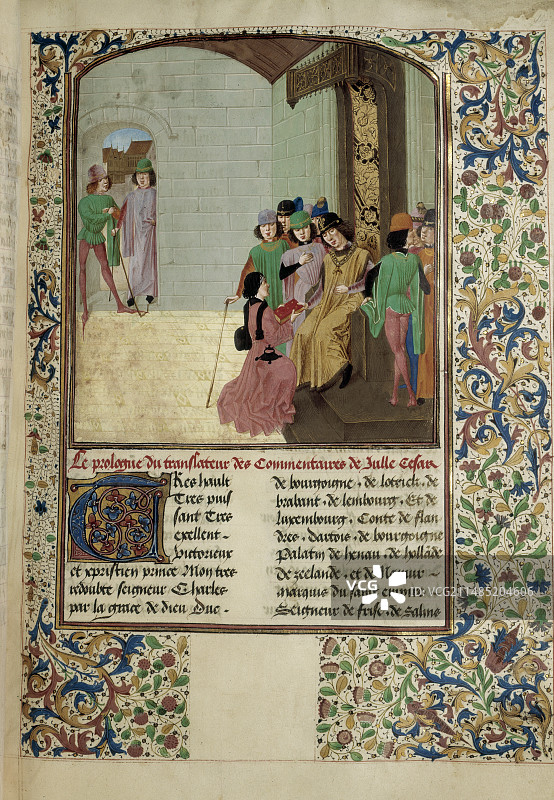 Le prologue du translateur des Commentaires de Julle Cesar
Tres hault
Tres puis
sant Tres
excellent
victorieux
et xpristien prince Mon tres
redoubte seigneur Charles
par la grace de dieu Duc
de bourgoigne . de lotrick . de
brabant . de lembourg . Et de
luxembourg . Conte de flan
dres . dartois . de bourgoigne
Palatin de henau . de hollāde
de zeelande . et de
marquis du saint empire
Seigneur de frise . de salins
VCG
VCG.COM